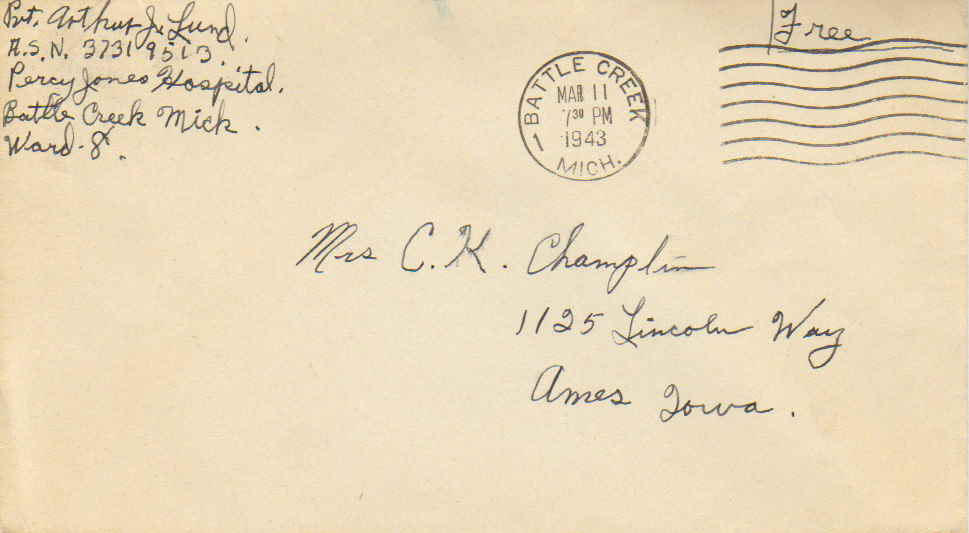 Pvt. Arthur J. Lund.
A.S.N. 37319513.
Percy Jones Hospital.
Battle Creek Mich.
Ward-8.
Free
BATTLE CREEK
MAR 11
7 30 PM
1943
1
MICH.
Mrs C. K. Champlin
1125 Lincoln Way
Ames Iowa.